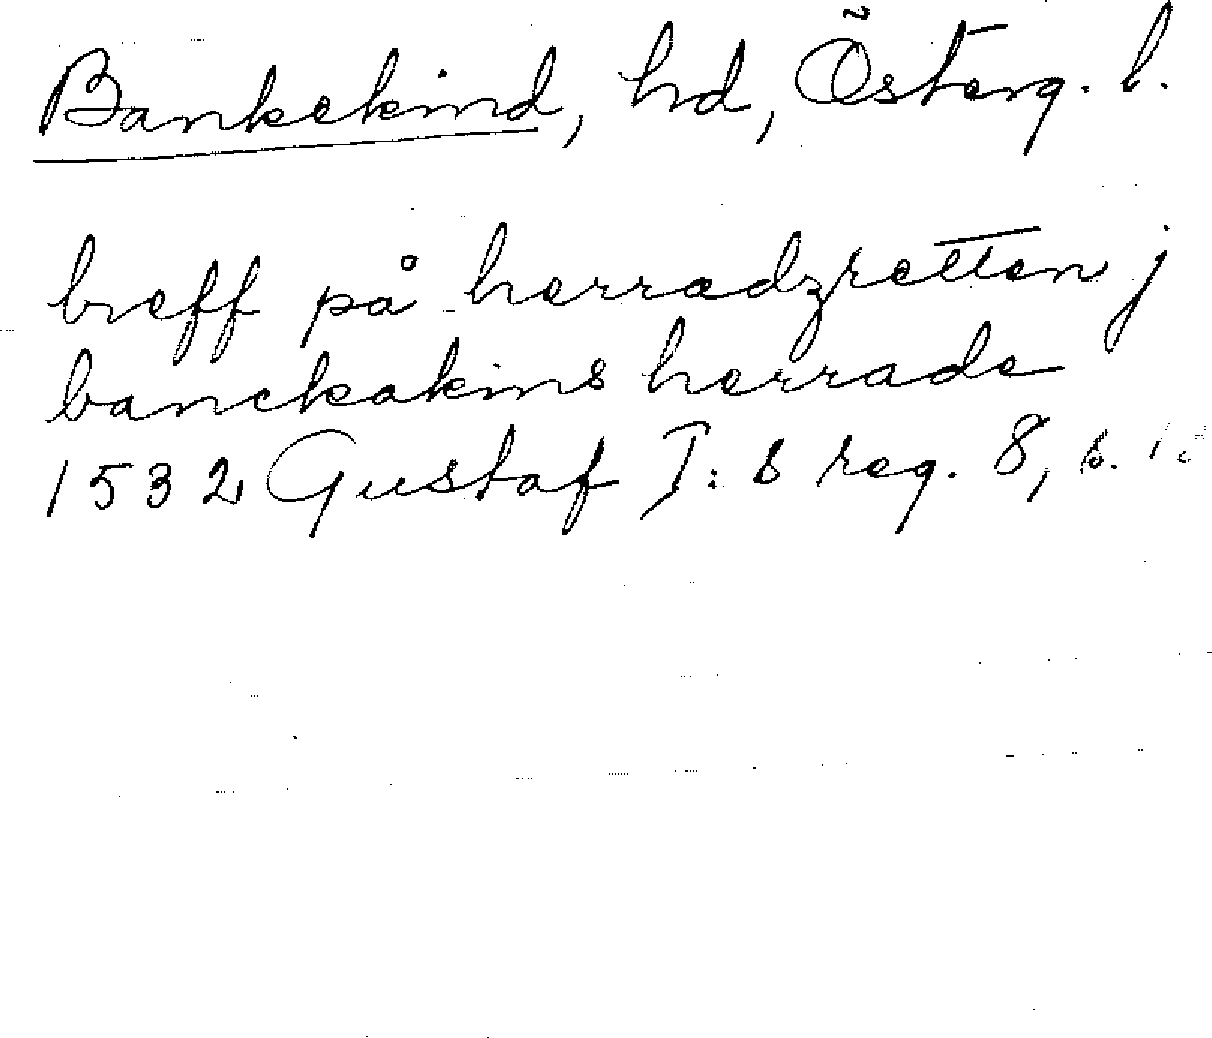 Bankekind, hd, Österg. l.
breff på herradzretten j
banckakins herrade
1532 Gustaf I:s reg. 8, s.